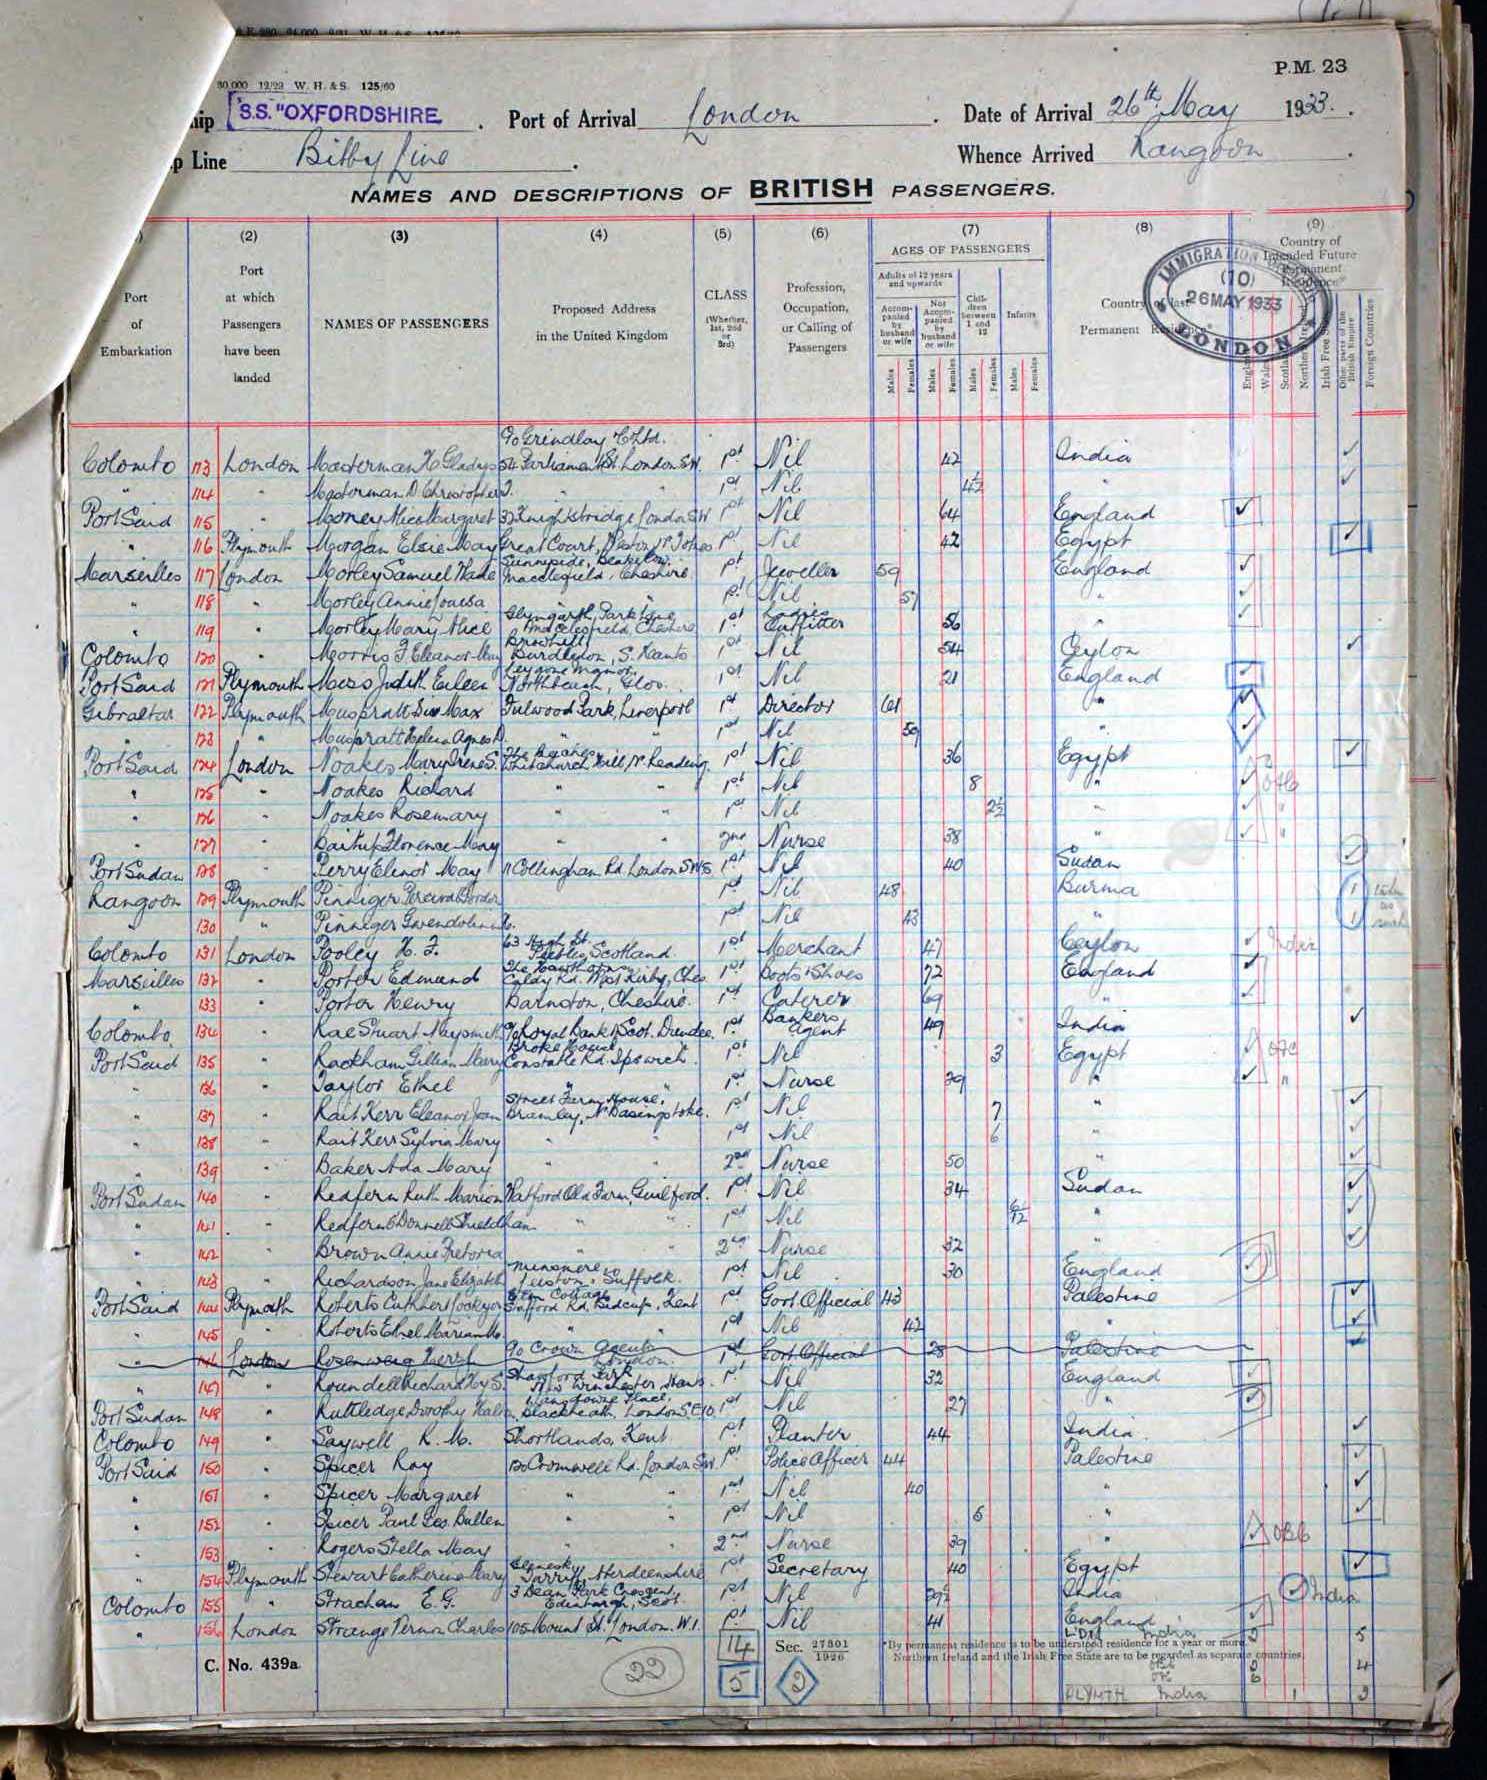 P.M. 23
30,000 12/22 W. H. & S. 125/60
S.S. "OXFORDSHIRE . Port of Arrival London . Date of Arrival 26th May 1933.
Line Bibby Line . Whence Arrived Rangoon .
NAMES AND DESCRIPTIONS OF BRITISH PASSENGERS.
(2) (3) (4) (5) (6) (7) (8) (9)
Port of Embarkation
Port at which Passengers have been landed
NAMES OF PASSENGERS
Proposed Address in the United Kingdom
CLASS (Whether, 1st, 2nd or 3rd)
Profession, Occupation, or Calling of Passengers
AGES OF PASSENGERS
Adults of 12 years and upwards
Accompanied by husband or wife
Not Accompanied by husband or wife
Children between 1 and 12
Infants
Males Females Males Females Males Females Males Females
Country of last Permanent Residence*
Country of Intended Future Permanent Residence*
Irish Free
Other parts of the British Empire
Foreign Countries
IMMIGRATION
(10)
26 MAY 1933
LONDON
c/o Grindlay & Co Ltd.
Colombo 113 London Masterman K Gladys 54 Parliament St. London S.W. 1st Nil 42 India
" 114 " Masterman D Christopher J. " " 1st Nil 4½ "
Port Said 115 " Money Alice Margaret 32 Knightsbridge London SW 1st Nil 64 England
" 116 Plymouth Morgan Elsie May Great Court, Nr Totnes 1st Nil 42 Egypt
Marseilles 117 London Morley Samuel Wade Sunnyside, Macclesfield, Cheshire 1st Jeweller 59 England
" 118 " Morley Annie Louisa " " 1st Nil 57 "
" 119 " Morley Mary Alice Park Lane Macclesfield, Cheshire 1st Ladies Outfitter 56 "
Colombo 120 " Morris F Eleanor May Bursledon, S. Hants 1st Nil 54 Ceylon
Port Said 121 Plymouth Moss Judith Eileen Manor, Northleach, Glos. 1st Nil 21 England
Gibraltar 122 Plymouth Muspratt Sir Max Fulwood Park, Liverpool 1st Director 61 "
" 123 " Muspratt Helena Agnes D. " " 1st Nil 59 "
Port Said 124 London Noakes Mary Irene S. The Beeches Whitchurch Hill, Nr Reading. 1st Nil 36 Egypt
" 125 " Noakes Richard " " 1st Nil 8 "
" 126 " Noakes Rosemary " " 1st Nil 2½ "
" 127 " Florence May 2nd Nurse 38 "
Port Sudan 128 " Perry Elinor May 11 Collingham Rd. London SW5 1st Nil 40 Sudan
Rangoon 129 Plymouth Pinniger Percival Gordon 1st Nil 48 Burma
" 130 " Pinniger Gwendoline 1st Nil 43 "
Colombo 131 London Pooley H. F. 63 High St. Peebles, Scotland 1st Merchant 47 Ceylon India
Marseilles 132 " Porter Edmund The Hawthorns Caldy Rd. West Kirby, Ches 1st Boots & Shoes 72 England
" 133 " Porter Henry Barnston, Cheshire. 1st Caterer 69 "
Colombo 134 " Rae Stuart Naysmith c/o Royal Bank of Scot. Dundee. 1st Bankers Agent 49 India
Port Said 135 " Rackham Gillian Mary Broke House Constable Rd. Ipswich 1st Nil 3 Egypt
" 136 " Taylor Ethel " " 1st Nurse 39 "
" 137 " Rait Kerr Eleanor Jean Street Farm House, Bramley, Nr Basingstoke. 1st Nil 7 "
" 138 " Rait Kerr Sylvia Mary " " 1st Nil 6 "
" 139 " Baker Ada Mary " " 2nd Nurse 50 "
Port Sudan 140 " Redfern Ruth Marion Old Farm, Guildford. 1st Nil 34 Sudan
" 141 " Redfern O'Donnell " " 1st Nil "
" 142 " Brown Annie Pretoria " " 2nd Nurse 32 "
" 143 " Richardson Jane Elizabeth Minsmere, Leiston, Suffolk. 1st Nil 30 England
Port Said 144 Plymouth Roberts Cuthbert Lockyer Elm Cottage Rd, Sidcup, Kent 1st Govt Official 43 Palestine
" 145 " Roberts Ethel Marian M. " " 1st Nil 42 "
" 146 London Rosenweig Hersh c/o Crown Agents London. 1st Govt Official 28 Palestine
" 147 " Roundell Richard Hy S. Park Nr Winchester, Hants. 1st Nil 32 England
Port Sudan 148 " Ruttledge Dorothy Place, Blackheath, London S.E.10. 1st Nil 27 "
Colombo 149 " Saywell R. M. Shortlands, Kent 1st Planter 44 India
Port Said 150 " Spicer Roy 120 Cromwell Rd. London SW. 1st Police Officer 44 Palestine
" 151 " Spicer Margaret " " 1st Nil 40 "
" 152 " Spicer Paul Geo. Bullen 1st Nil 5 "
" 153 " Rogers Stella May " " 2nd Nurse 39 "
" 154 Plymouth Stewart Catherine Mary Turriff, Aberdeenshire 1st Secretary 40 Egypt
Colombo 155 " Strachan E. G. 3 Dean Park Crescent, Edinburgh, Scot. 1st Nil India India
" 156 London Strange Vernon Charles 105 Mount St. London. W.1. 1st Nil 41 England
C. No. 439a.
22
14
5
2
Sec. 27801/1926
*By permanent residence is to be understood residence for a year or more.
Northern Ireland and the Irish Free State are to be regarded as separate countries.
LDN India 2 5
PLYMTH India 1 2